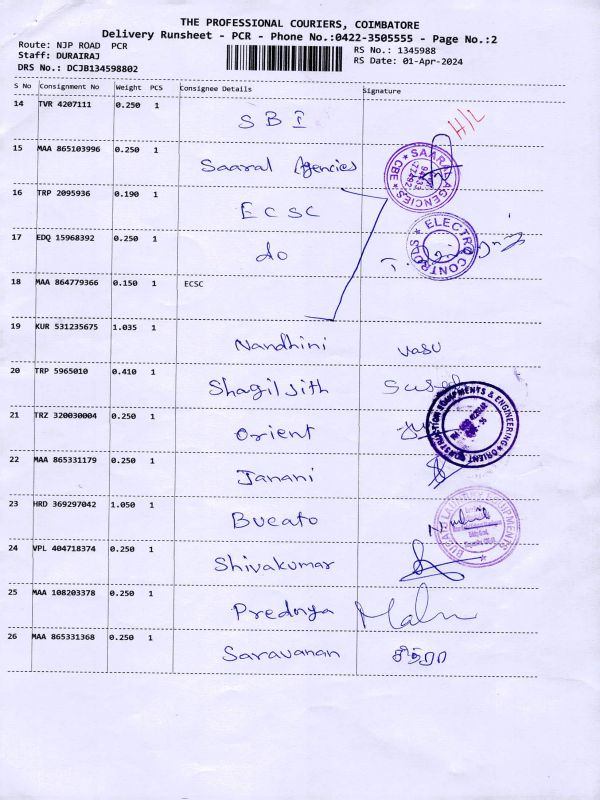 THE PROFESSIONAL COURIERS, COIMBATORE
Delivery Runsheet - PCR - Phone No.:0422-3505555 - Page No.:2
Route: NJP ROAD PCR
RS No.: 1345988
Staff: DURAIRAJ
RS Date: 01-Apr-2024
DRS No.: DCJB134598802
S No Consignment No Weight PCS Consignee Details Signature
14 TVR 4207111 0.250 1 SBI H/L
15 MAA 865103996 0.250 1 Saaral Agencies
SAARAL AGENCIES * CBE *
16 TRP 2095936 0.190 1 ECSC
17 EDQ 15968392 0.250 1 do
* ELECTRO CONTROLS
18 MAA 864779366 0.150 1 ECSC
19 KUR 531235675 1.035 1 Nandhini vasu
20 TRP 5965010 0.410 1 Shagil Jith
21 TRZ 320030004 0.250 1 Orient
ORIENT CONSTRUCTION EQUIPMENTS & ENGINEERING
22 MAA 865331179 0.250 1 Janani
23 HRD 369297042 1.050 1 Bucato
EQUIPMENTS
24 VPL 404718374 0.250 1 Shivakumar
25 MAA 108203378 0.250 1
26 MAA 865331368 0.250 1 Saravanan சித்ரா